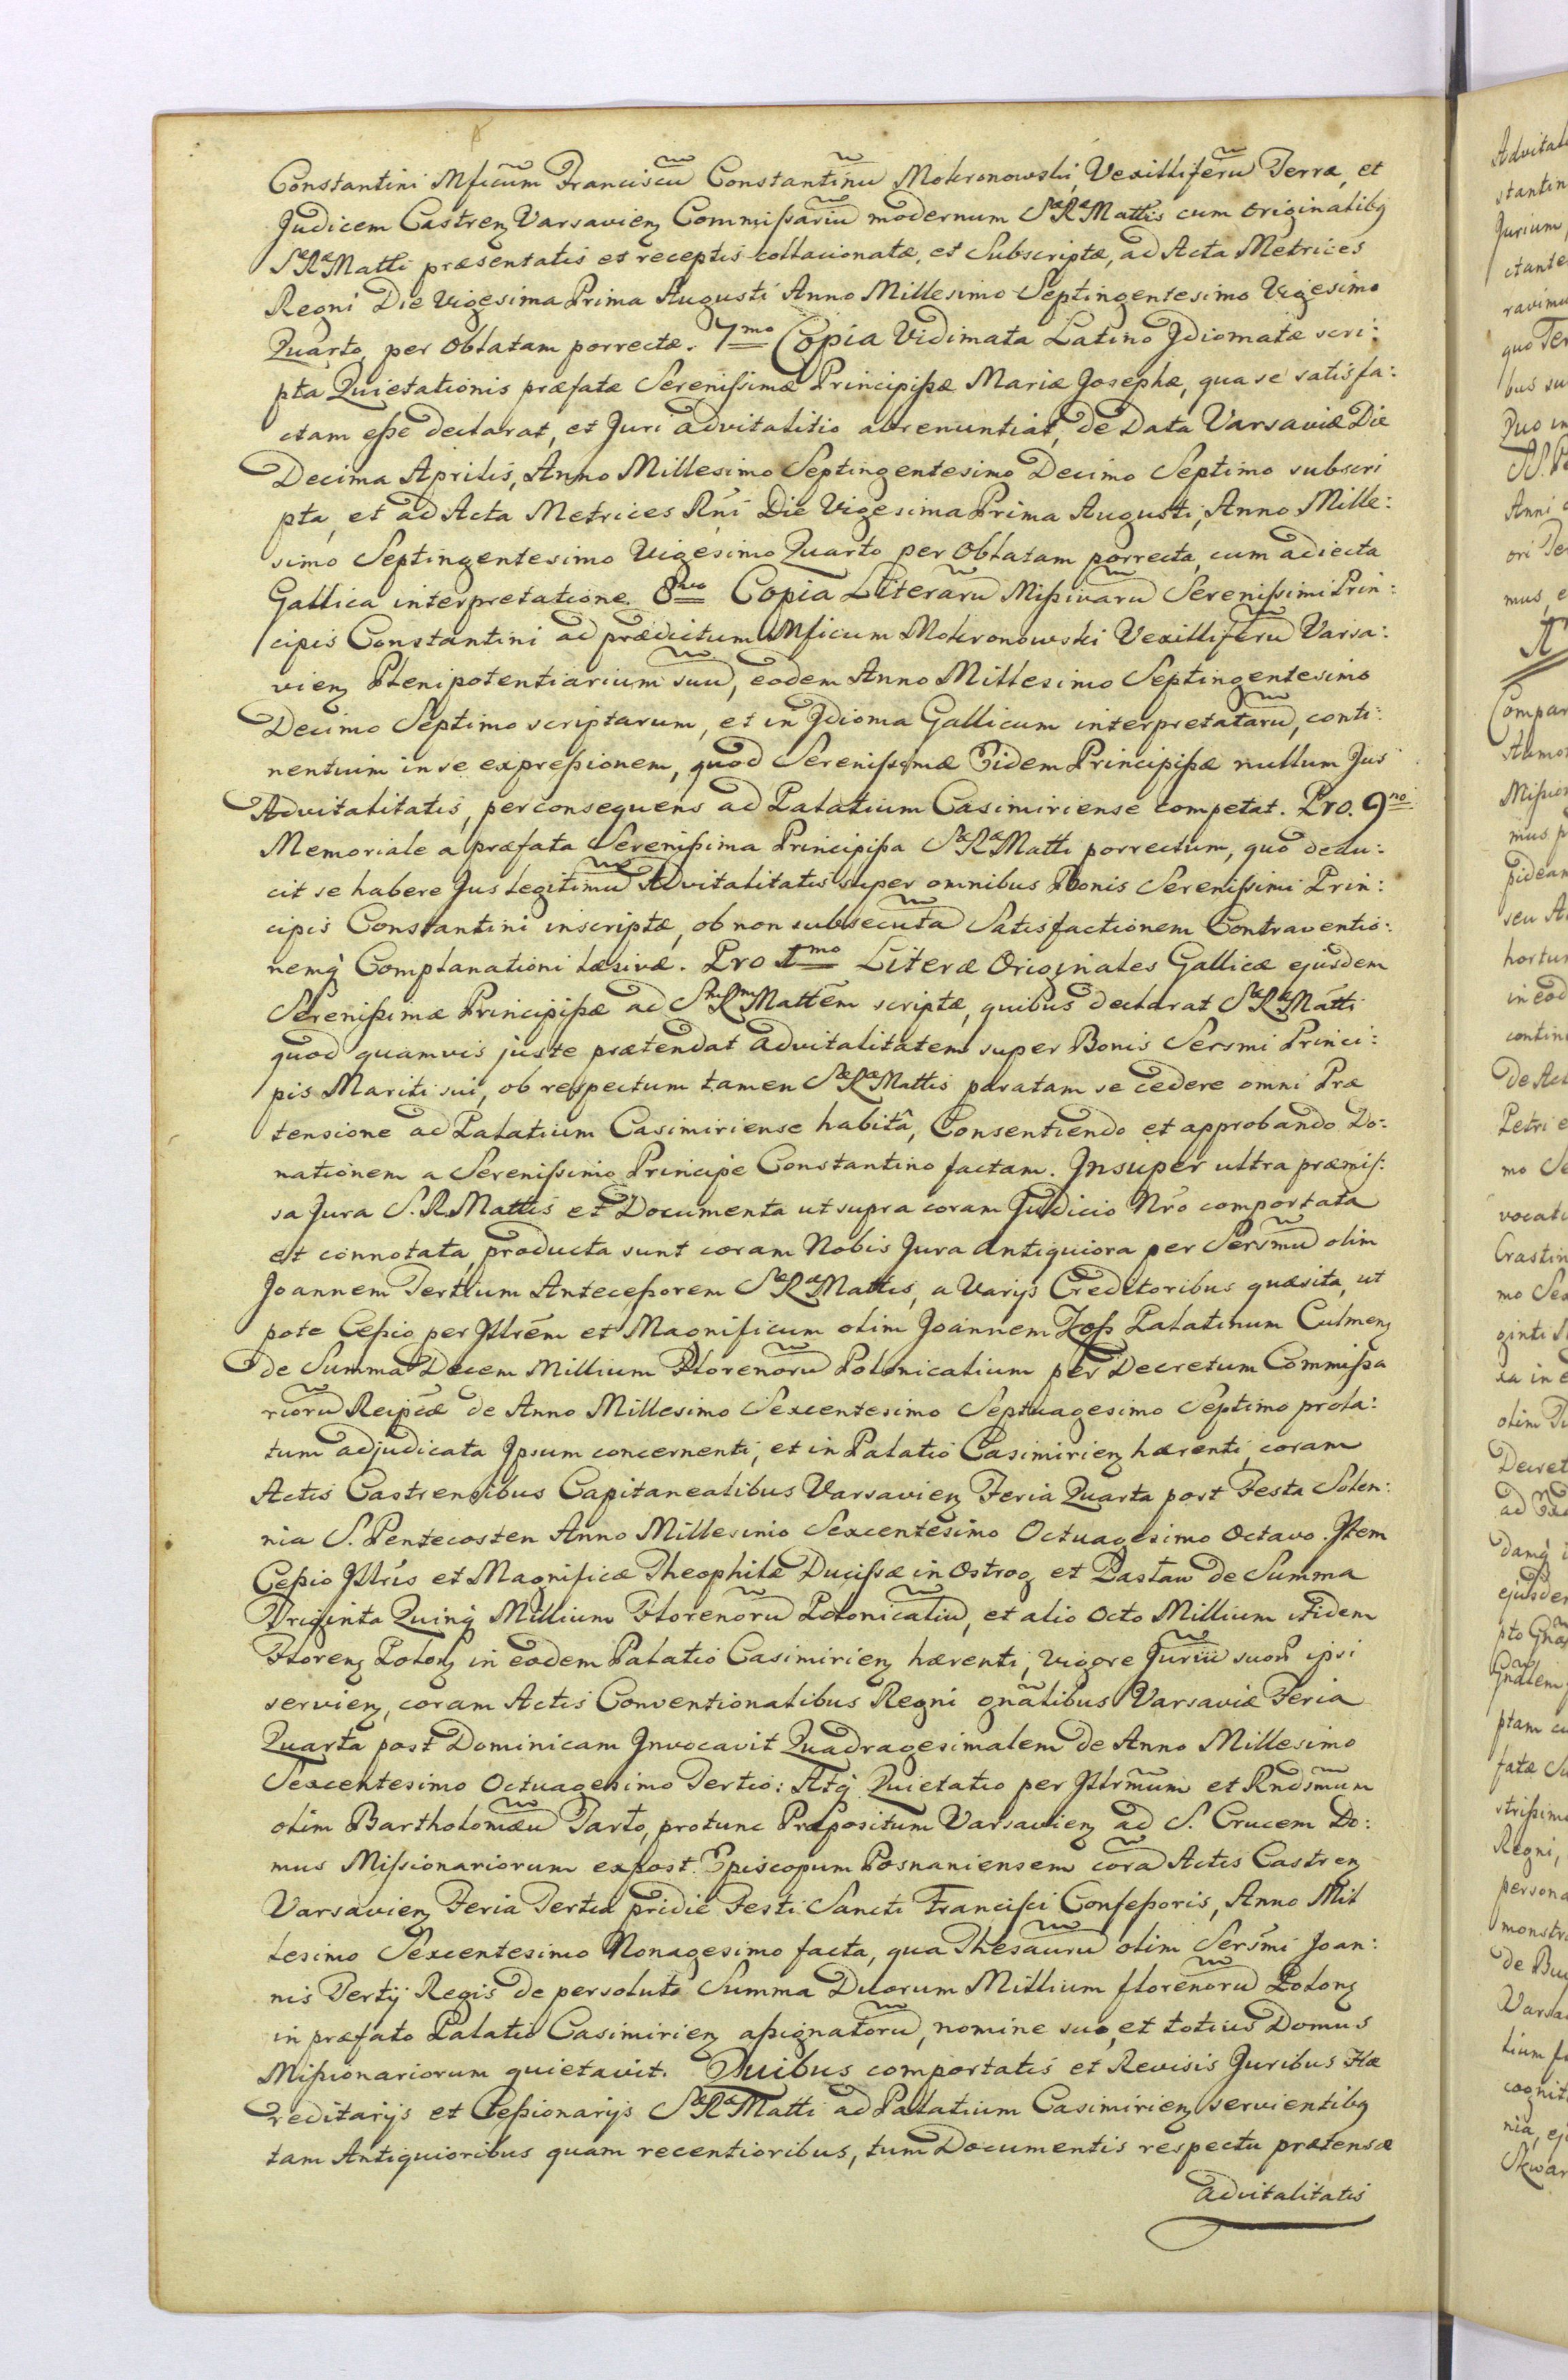 Constantini Mficum Franciscu Constantinu Mokronowski, Vexilliferu Terræ, et
Judicem Castren Varsavien Commissariu modernum Sæ Ræ Mattis cum Originalibq
Sæ Ræ Matti præsentatis et receptis collacionatæ, et Subscriptæ, ad Acta Metrices
Regni Die Vigesima Prima Augusti Anno Millesimo Septingentesimo Vigesimo
Quarto, per Oblatam porrectæ. 7mo Copia Vidimata Latino Jdiomate scri:
pta Quietationis præfatæ Serenissimæ Principissæ Mariæ Josephæ, qua se satisfa:
ctam esse declarat, et Juri advitalitio abrenuntiat, de Data Varsaviæ Die
Decima Aprilis, Anno Millesimo Septingentesimo Decimo Septimo subscri
pta, et ad Acta Metrices Rni Die Vigesima Prima Augusti, Anno Mille:
simo Septingentesimo Vigesimo Quarto per Oblatam porrecta, cum adiecta
Gallica interpretatione. 8vo Copia Literaru Missivaru Serenissimi Prin:
cipis Constantini ad prædictum Mficum Mokronowski Vexilliferu Varsa:
vien Plenipotentiarium suu, eodem Anno Millesimo Septingentesimo
Decimo Septimo scriptarum, et in Jdioma Gallicum interpretataru, conti:
nentium in se expressionem, quod Serenissimæ Eidem Principissæ nullum Jus
Advitalitatis, per consequens ad Palatium Casimiriense competat. Pro. 9no
Memoriale a præfata Serenissima Principissa Sæ Ræ Matti porrectum, quo dedu:
cit se habere Jus legitimu Advitalitatis super omnibus Bonis Serenissimi Prin:
cipis Constantini inscriptæ, ob non subsecuta Satisfactionem Contraventio:
nemq Complanationi læsivæ. Pro 1mo Literæ Originales Gallicæ ejusdem
Serenissimæ Principissæ ad Sm Rm Mattem scriptæ, quibus declarat Sæ Ræ Matti
quod quamvis juste prætendat advitalitatem super Bonis Sersmi Princi:
pis Mariti sui, ob respectum tamen Sæ Ræ Mattis paratam se cedere omni Præ
tensione ad Palatium Casimiriense habitâ, Consentiendo et approbando Do:
nationem a Serenissimo Principe Constantino factam. Jnsuper ultra præmis:
sa Jura S. R. Mattis et Documenta ut supra coram Judicio Nro comportata
et connotata, producta sunt coram Nobis Jura antiquiora per Sersmu olim
Joannem Tertium Antecessorem Sæ Ræ Mattis, a Varijs Creditoribus quæsita, ut
pote Cessio per Jllrem et Magnificum olim Joannem Koss Palatinum Culmen
de Summa Decem Millium Florenoru Polonicalium per Decretum Commissa
rioru Reipcæ de Anno Millesimo Sexcentesimo Septuagesimo Septimo prola:
tum adjudicata Jpsum concernenti, et in Palatio Casimirien hærenti, coram
Actis Castrensibus Capitanealibus Varsavien Feria Quarta post Festa Solen:
nia S. Pentecosten Anno Millesimo Sexcentesimo Octuagesimo Octavo. Jtem
Cessio Jllris et Magnificæ Theophilæ Ducissæ in Ostrog et Zaslaw de Summa
Triginta Quinq Millium Florenoru Polonicaliu, et alio Octo Millium itidem
Floren Polon in eodem Palatio Casimirien hærenti, vigore Juriu suor ipsi
servien, coram Actis Conventionalibus Regni gnalibus Varsaviæ Feria
Quarta post Dominicam Jnvocavit Quadragesimalem de Anno Millesimo
Sexcentesimo Octuagesimo Tertio: Atq Quietatio per Jllrmum et Rndsmum
olim Bartholomæu Tarło, protunc Præpositum Varsavien ad S. Crucem Do:
mus Missionariorum expost Episcopum Posnaniensem cora Actis Castren
Varsavien Feria Tertia pridie Festi Sancti Francisci Confessoris, Anno Mil
lesimo Sexcentesimo Nonagesimo facta, qua Thesauru olim Sersmi Joan:
nis Tertij Regis de persoluta Summa Duorum Millium florenoru Polon
in præfato Palatio Casimirien assignatoru, nomine suo, et totius Domus
Missionariorum quietavit. Quibus comportatis et Revisis Juribus Hæ
reditarijs et Cessionarijs Sæ Ræ Matti ad Palatium Casimirien servientibq
tam Antiquioribus quam recentioribus, tum Documentis respectu prætensæ
advitalitatis